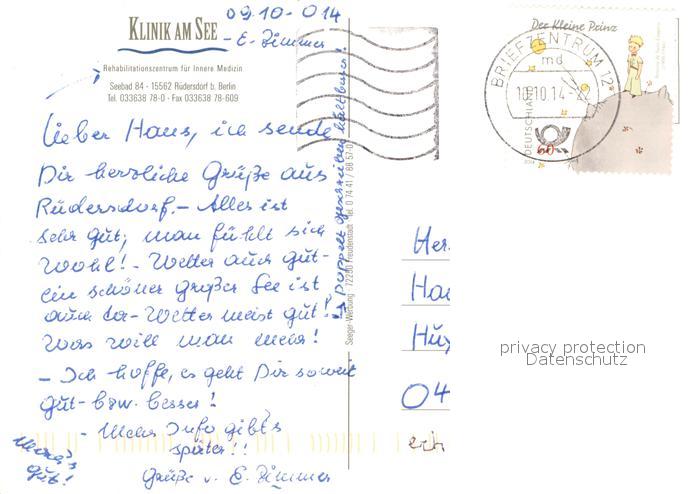 09.10-014
KLINIK AM SEE
- E. Zimmer
Rehabilitationszentrum für Innere Medizin
Seebad 84 - 15562 Rüdersdorf b. Berlin
Tel. 033638 78-0 - Fax 033638 78-609
Lieber Hans, ich sende
Dir herzliche Grüße aus
Rüdersdorf. - Alles ist
sehr gut, man fühlt sich
wohl! - Wetter auch gut -
ein schöner großer See ist
auch da - Wetter meist gut!
Was will man mehr!
- Ich hoffe, es geht Dir soweit
gut - bzw. besser!
- Mehr Info gibt's
später!!
Mach's
gut!
Grüße v. E. Zimmer
Doppelt geschrieben hält besser!
Seeger-Werbung · 72250 Freudenstadt · Tel. 0 74 41 / 88 57-0
Der Kleine Prinz
BRIEFZENTRUM 12
md
10.10.14
DEUTSCHLAND
60
Her
Ha
04
privacy protection
Datenschutz